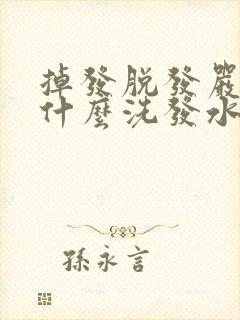 掉發脫發嚴
什麼洗發水
孫永言